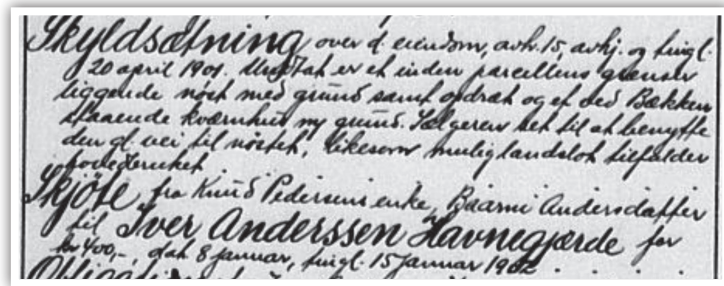 Skyldsætning over d. eiendom, avh. 15, avhj. og tingl.
20 april 1901. Undtat er et inden parcellens grænser
liggende nøst med grund samt opdræt og et ved Bækken
staaende kværnhus m/ grund. Sælgeren ret til at benytte
den gl. vei til nøstet, likesom mulig landslot tilfalder
hovedbruket
Skjöte fra Knud Pedersens enke, Baarni Andersdatter
til Iver Anderssen Havnegjærde for
kr 400,-, dat 8 januar, tingl. 15 januar 1902